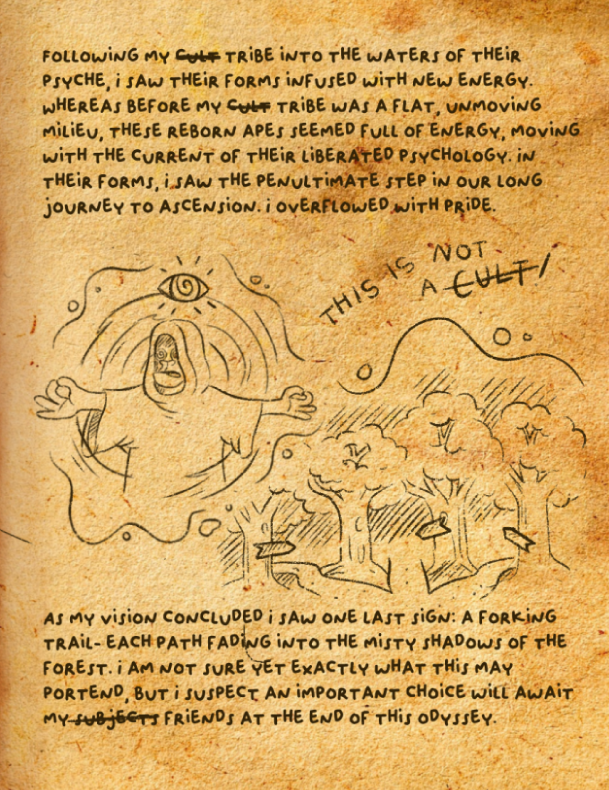 FOLLOWING MY CULT TRIBE INTO THE WATERS OF THEIR
PSYCHE, I SAW THEIR FORMS INFUSED WITH NEW ENERGY.
WHEREAS BEFORE MY CULT TRIBE WAS A FLAT, UNMOVING
MILIEU, THESE REBORN APES SEEMED FULL OF ENERGY, MOVING
WITH THE CURRENT OF THEIR LIBERATED PSYCHOLOGY. IN
THEIR FORMS, I SAW THE PENULTIMATE STEP IN OUR LONG
JOURNEY TO ASCENSION. I OVERFLOWED WITH PRIDE.
THIS IS NOT
A CULT!
AS MY VISION CONCLUDED I SAW ONE LAST SIGN: A FORKING
TRAIL- EACH PATH FADING INTO THE MISTY SHADOWS OF THE
FOREST. I AM NOT SURE YET EXACTLY WHAT THIS MAY
PORTEND, BUT I SUSPECT AN IMPORTANT CHOICE WILL AWAIT
MY SUBJECTS FRIENDS AT THE END OF THIS ODYSSEY.